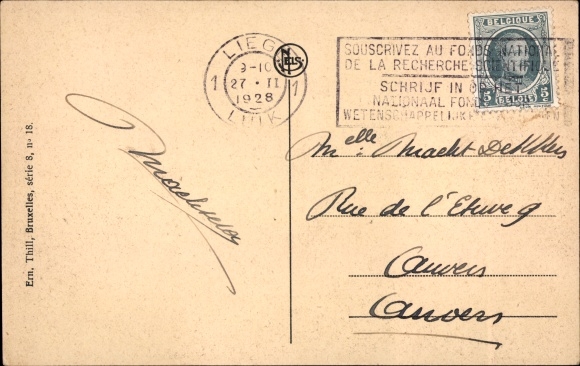 LIEGE
1 9-10 1
27·II
1928
LUIK
NELS
SOUSCRIVEZ AU FONDS NATIONAL
DE LA RECHERCHE SCIENTIFIQUE
SCHRIJF IN OP HET
NATIONAAL FONDS
WETENSCHAPPELIJK
BELGIQUE
5 BELGIË 5
Melle
Rue de l'Etuve 9
Anvers
Anvers
Ern. Thill, Bruxelles, série 8, nº 18.